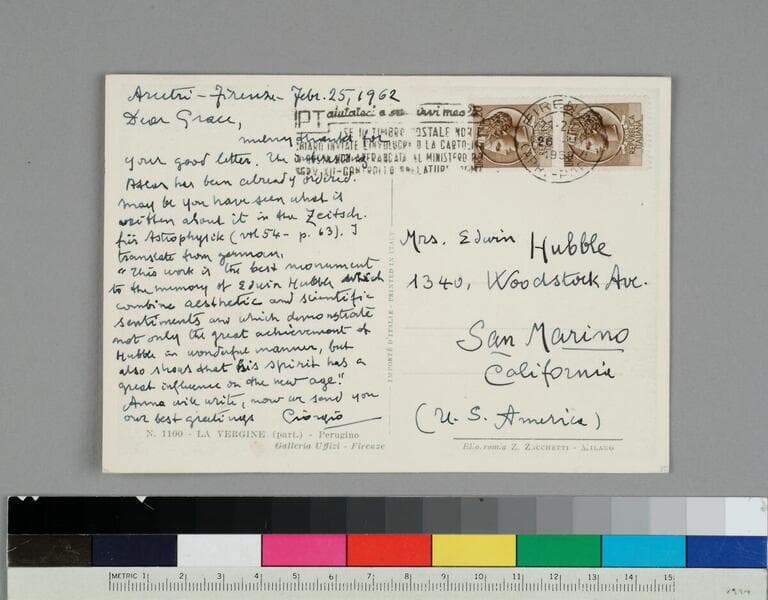 Arcetri - Firenze - Febr. 25, 1962
Dear Grace,
many thanks for
your good letter. The
has been already ordered.
May be you have seen what is
written about it in the Zeitsch.
für Astrophysik (vol 54 - p. 63). I
translate from german,
"This work is the best monument
to the memory of Edwin Hubble which
combine aesthetic and scientific
sentiments and which demonstrate
not only the great achievement of
Hubble in wonderful manner, but
also shows that his spirit has a
great influence on the new age."
Anna will write, now we send you
our best greetings Giorgio
N. 1100 - LA VERGINE (part.) - Perugino
Galleria Uffizi - Firenze
IMPORTÉ D'ITALIE - PRINTED IN ITALY
PT aiutateci a servirvi meglio
SE IL TIMBRO POSTALE NON
CHIARO INVIATE L'INVOLUCRO O LA CARTOLINA
AL MINISTERO
REPVBBLICA ITALIANA
Mrs. Edwin Hubble
1340, Woodstock Ave.
San Marino
California
(U. S. America)
Z. ZACCHETTI - MILANO
METRIC 1 2 3 4 5 6 7 8 9 10 11 12 13 14 15